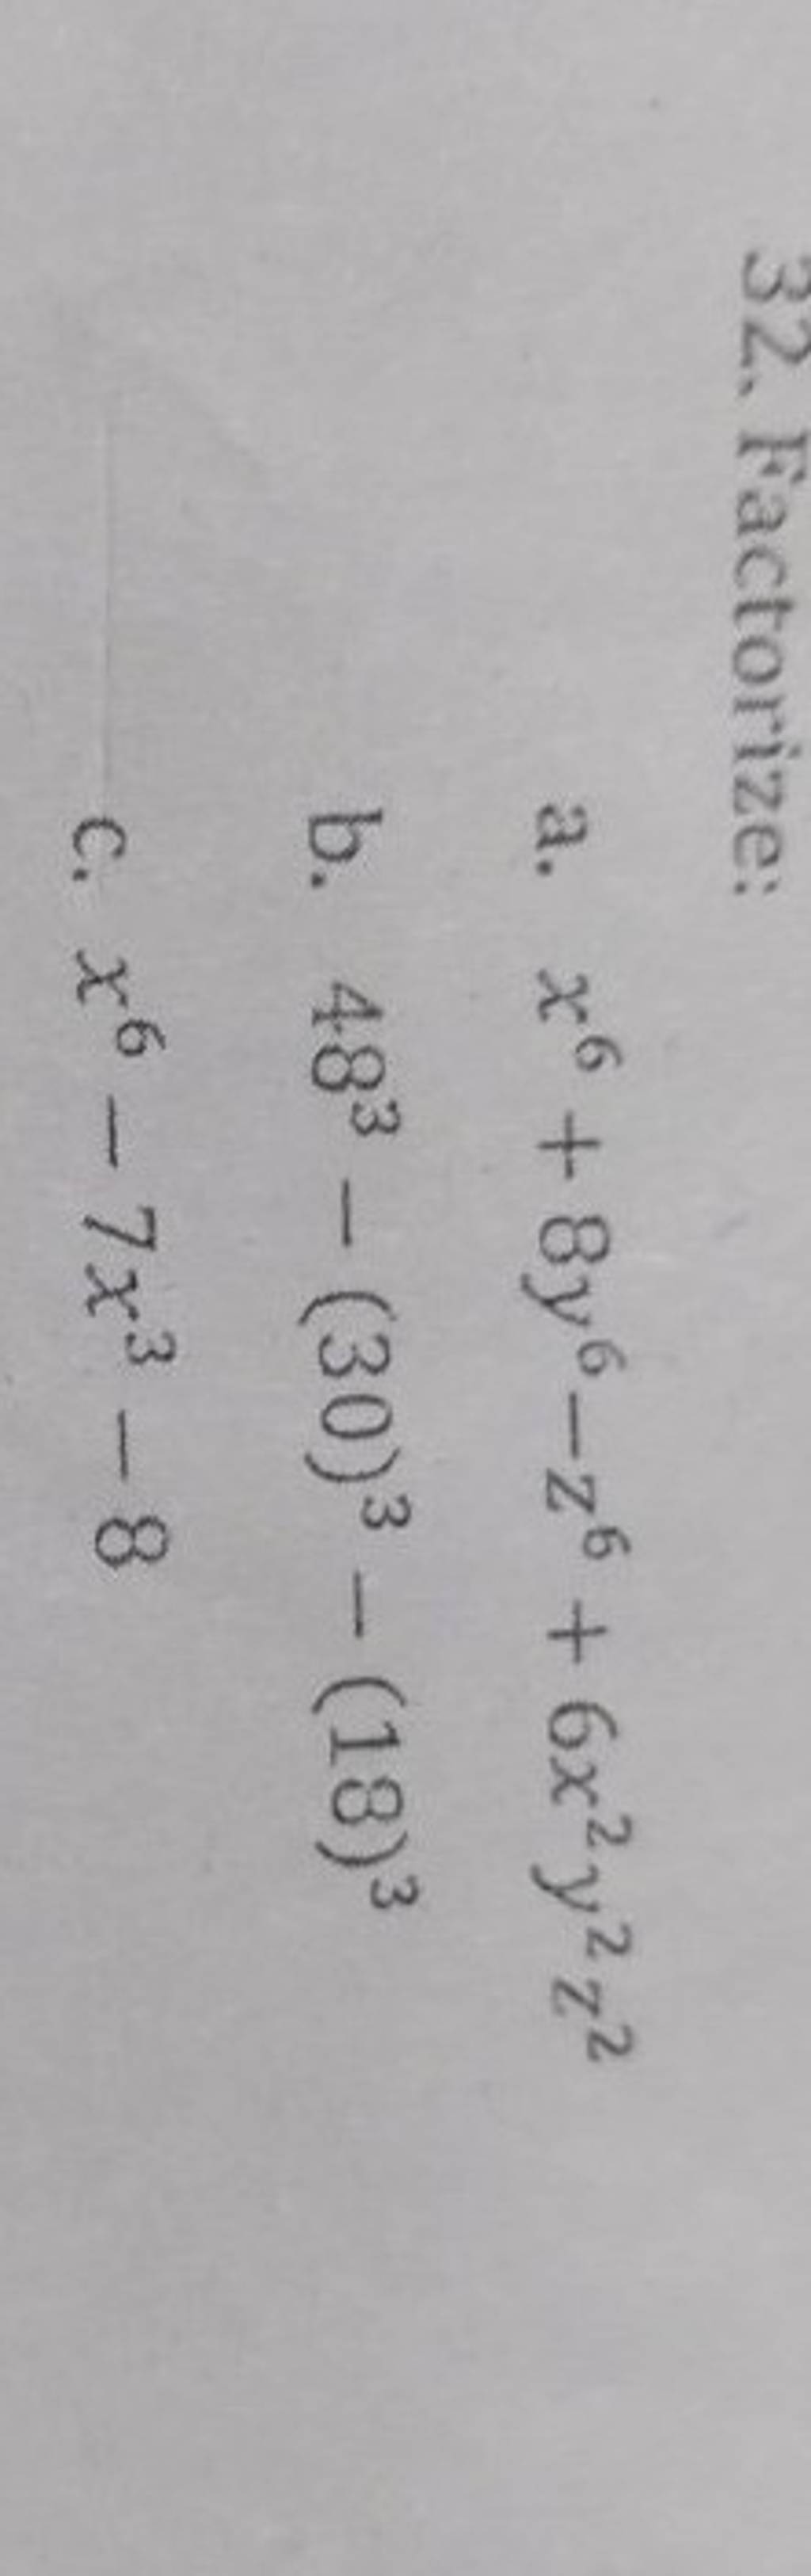 32. Factorize:
a. x⁶ + 8y⁶−z⁶ + 6x²y²z²
b. 48³ − (30)³ − (18)³
c. x⁶ − 7x³ − 8